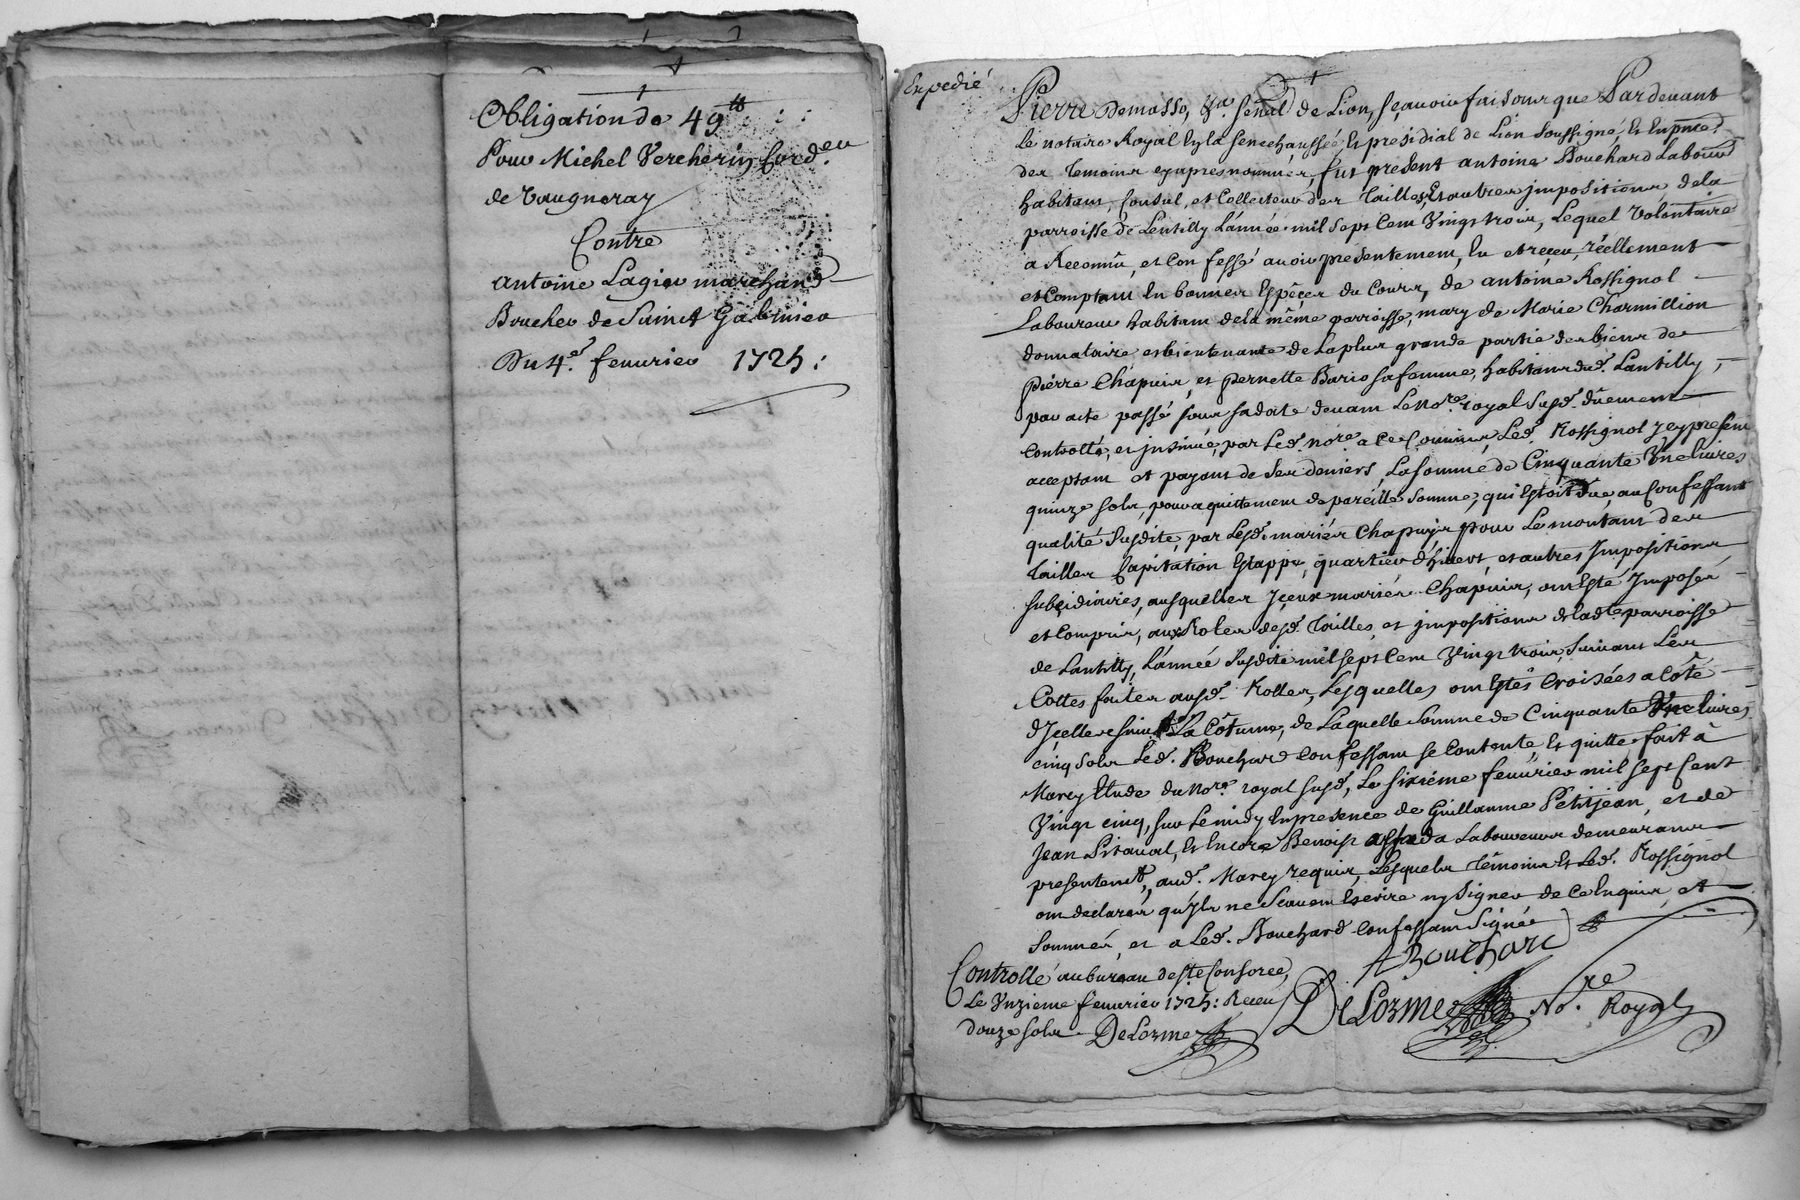 Obligation de 49 ᵗᵗ
Pour Michel Vercherin cord.ʳ
de Vaugneray
Contre
antoine Lagier marchand
Boucher de Sainct Galmier
Du 4.ᵉ feuurier 1725 :
Expedié
Pierre Demasso, sénal de Lion, sçauoir faisons que Pardeuant
le notaire Royal En la seneschaussée Et presidial de Lion soussigné, Et En pnce
des Temoins cyapres nommés, fut present antoine Bouchard Labour
habitant, Consul, et Collecteur des Tailles, Et autres jmpositions de la
parroisse de Lentilly L'année mil sept Cent Vingt trois, Lequel Volontaire
a Reconnû, et Confessé auoir presentement, Eu et receu, réellement
et Comptant En bonnes Espêces du Cours, de antoine Rossignol
Laboureur habitant de la même parroisse, mary de Marie Charmillion
donnataire et bientenante de la plus grande partie des biens de
pierre Chapuis, et pernette Bario sa femme, habitans dud. Lantilly,
par acte passé sous sa date deuant Le No.re royal susd. dûement
Controllé, et jnsinué, par Led. no.re a ce Commis, Led. Rossignol jcy present
acceptant et payant de ses deniers, La somme de Cinquante Vne liures
quinze sols, pour aquittement de pareille somme, qui Estoit düe au Confessant
qualité susdite, par Lesd. mariés Chapuis pour Le montant des
Tailles Capitation Etappe, quartier d'hiuert, et autres Jmpositions
subsidiaires, ausquelles Jceux mariés Chapuis, ont Esté Jmposés
et Compris, aux Roles desd. Tailles, et jmpositions de ladte parroisse
de Lantilly, L'année susdite mil sept Cent Vingt trois, suiuant Les
Cottes faites ausd. Rolles, Lesquelles ont Estés Croisées a Côté
d'Jcelles suiuᵗ La Côtume, de Laquelle somme de Cinquante Vne liures
cinq sols Led. Bouchard Confessant se Contente, Et quitte fait à
Marcy Etude du No.re royal susd., Le sixiéme feuurier mil sept Cent
Vingt cinq, sur Le midy En presence de Guillaume Petitjean, et de
Jean Pitaval, Et Encore Benoist Laboureurs demeurans
presentemt, aud. Marcy requis, Lesquels Témoins Et Led. Rossignol
ont declarés qu'jls ne Scauent Escrire ny signer de Ce Enquis, et
sommés, et a Led. Bouchard Confessant Signée
A Bouchard
Controllé au bureau de Ste Consorce,
Le Vnzieme feuurier 1725 : Receu
douze sols DeLorme
DeLorme No.re Royal